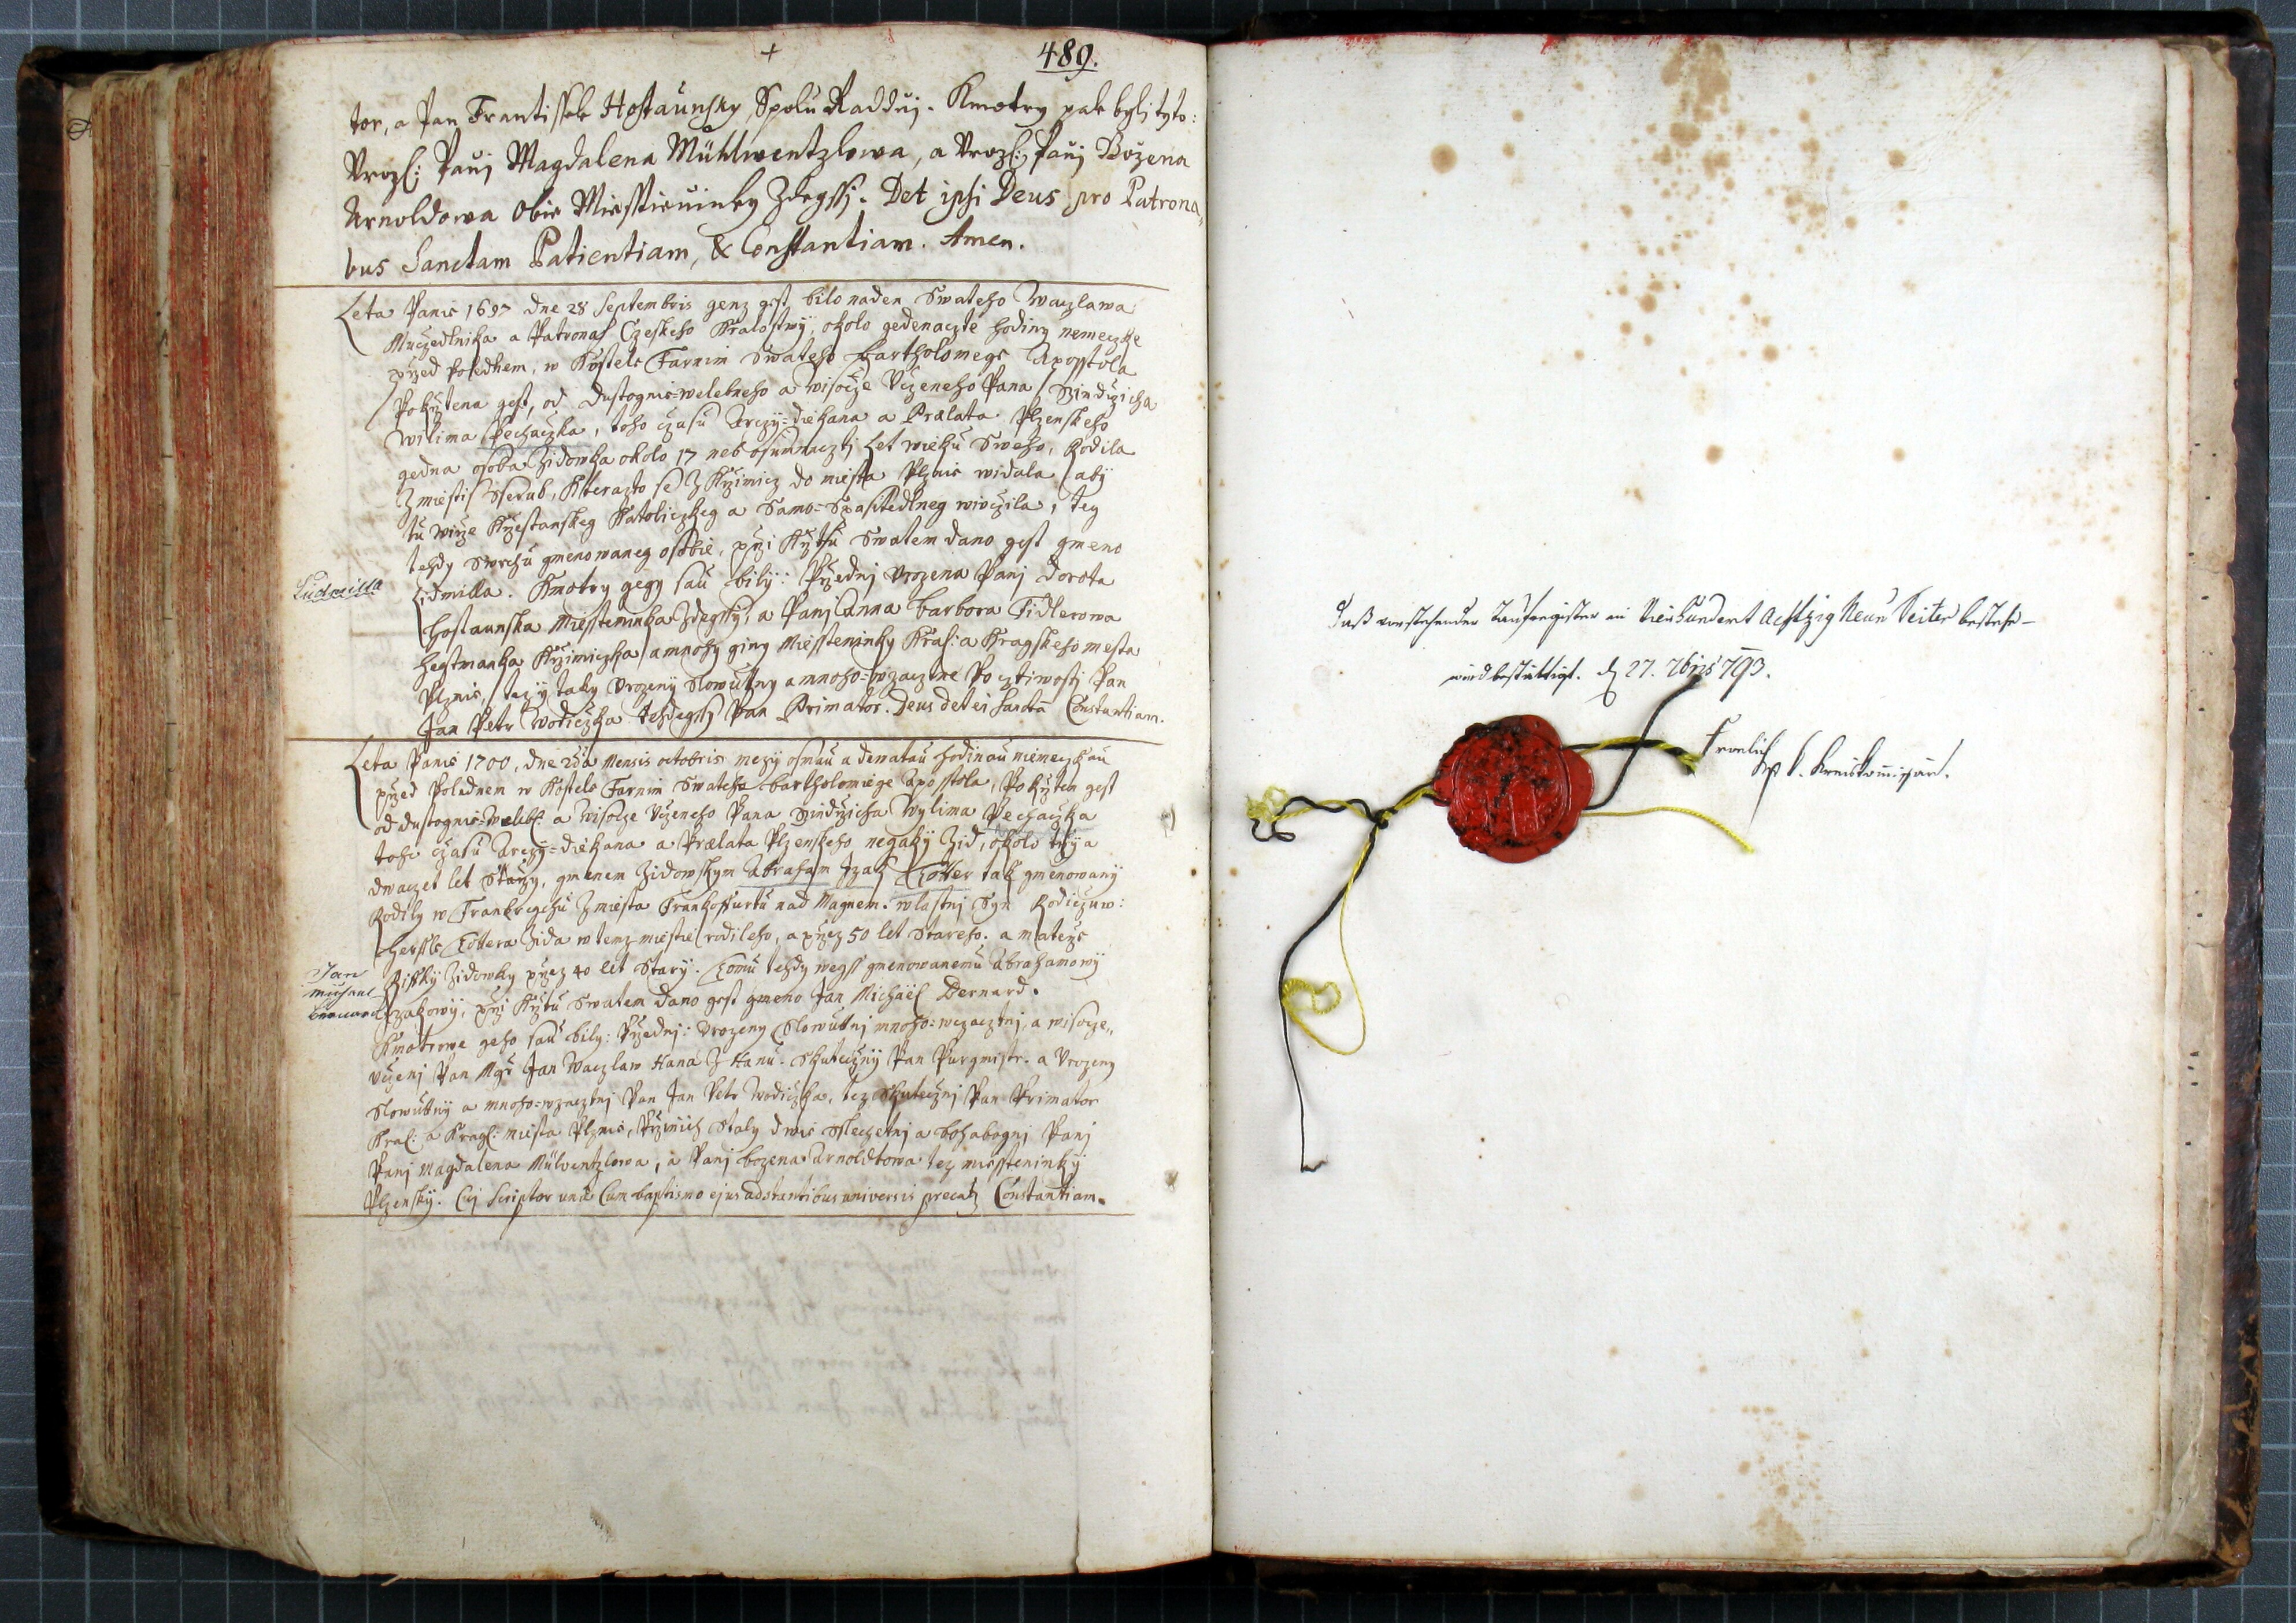 489.
tor, a Pan Frantissek Hostaunsky, Spolu Raddnj. Kmotry pak bylj tyto:
Vroz: Panj Magdalena Mühlwentzlowa, a Vroz: Panj Božena
Arnoldowa Obie Miesstieninky Zdegssj. Det ipsi Deus pro Patrona=
bus Sanctam Patientiam, & Constantiam. Amen.
Leta Panie 1697 dne 28 Septembris genz gest bilo na den Swateho Waczlawa
Muczedlnika a Patrona Czeskeho Kralostwy, okolo gedenaczte hodiny nemeczke
przed Polednem, w Kostele Farnim Swateho Bartholomege Aposstola
Pokrztena gest, od dustogne=welebneho a wisocze Vczeneho Pana Gindrzicha
Wilima Pechaczka, toho czasu Arczy=diekana a Prælata Plzenskeho
gedna osoba Zidowka okolo 17 neb osumnaczti Let wieku Sweho, Rodila
Z miesti Sserub, kterazto se Z Krzimicz do miesta Plznie widala aby
tu wirze Krzestanskeg Katoliczkeg a Samo=Spasitedlneg wivczila, teg
tehdy Swrchu gmenowaneg osobie, przi Krztu Swatem dano gest gmeno
Ludmilla
Lidmilla. Kmotry gegy sau bily: Przednj Vrozena Panj Dorota
Hostaunska Miessteninka Zdegssy, a Panj Anna Barbora Fidlerowa
Hegtmanka Krzimiczka a mnohy giny Miessteninky Kral: a Kragskeho mesta
Plznie, tezy taky Vrozeny Slowutny a mnoho=wzactne Pocztiwosti Pan
Jan Petr Wodiczka tehdegssy Pan Primator. Deus det ei Sanctã Constantiam.
Leta Panie 1700, dne 2da Mensis octobris mezy osmau a dewatau hodinau niemeczkau
przed Poladnem w Kostele Farnim Swateho Bartholomiege Aposstola, Pokrzten gest
od dustognie=Weleb: a Wisocze Vczeneho Pana Gindrzicha Wylima Pechaczka
toho czasu Arczy=diekana a Prælata Plzenskeho negaky Zid, okolo trzy a
dwaczet let Starzy, gmenem Zidowskym Abraham Izak Kotter tak gmenowany
Rodily w Frankreychu Z miesta Frankoffurtu nad Magnem. wlastnj Syn Rodiczuw:
Hersste Kottera Zida w temz miestie rodileho, a przez 50 let Stareho. a Materze
Rifky Zidowky przez 40 let Stary. Komu tehdy wegss gmenowanemu Abrahamowy
Jan
Michael
Bernard
Izakowy, przi Krztu Swatem dano gest gmeno Jan Michäel Bernard.
Kmotrowe geho sau bily: Przednj: Vrozeny Slowutnj mnoho=wzacztnj, a wisocze
vczenj Pan Mgr Jan Waczlaw Hana Z Hanu. Skuteczny Pan Purgmistr. a Vrozeny
Slowutny a mnoho=wzacztnj Pan Jan Petr Wodiczka, tez Skutecznj Pan Primator
Kral: a Krag: Miesta Plznie, Przinich Staly dwie Sslechetnj a bohabognj Panj
Panj Magdalena Mülventzlowa, a Panj Bozena Arnoldtowa tez miessteninky
Plzensky. Cuj Scriptor unâ Cum baptismo ejus adstantibus universis precatr Constantiam.
Daß vorstehender Taufregister in Vierhundert Achtzig Neun Seiten bestehe
wird bestättigt. d 27. 7bris 793.
Froelich
k. Kreiskommissär.